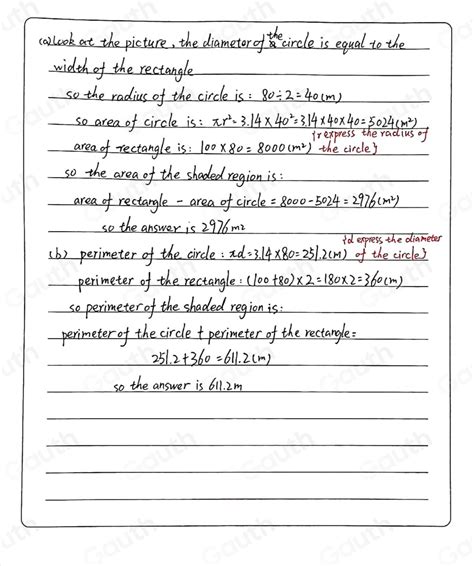 (a) Look at the picture, the diameter of the circle is equal to the
width of the rectangle
so the radius of the circle is: 80÷2=40(m)
so area of circle is: πr²=3.14×40²=3.14×40×40=5024(m²)
{r express the radius of
area of rectangle is: 100×80=8000(m²) the circle}
so the area of the shaded region is:
area of rectangle - area of circle = 8000-5024=2976(m²)
so the answer is 2976m²
{d express the diameter
(b) perimeter of the circle: πd=3.14×80=251.2(m) of the circle}
perimeter of the rectangle: (100+80)×2=180×2=360(m)
so perimeter of the shaded region is:
perimeter of the circle + perimeter of the rectangle=
251.2+360=611.2(m)
so the answer is 611.2m
Gauth